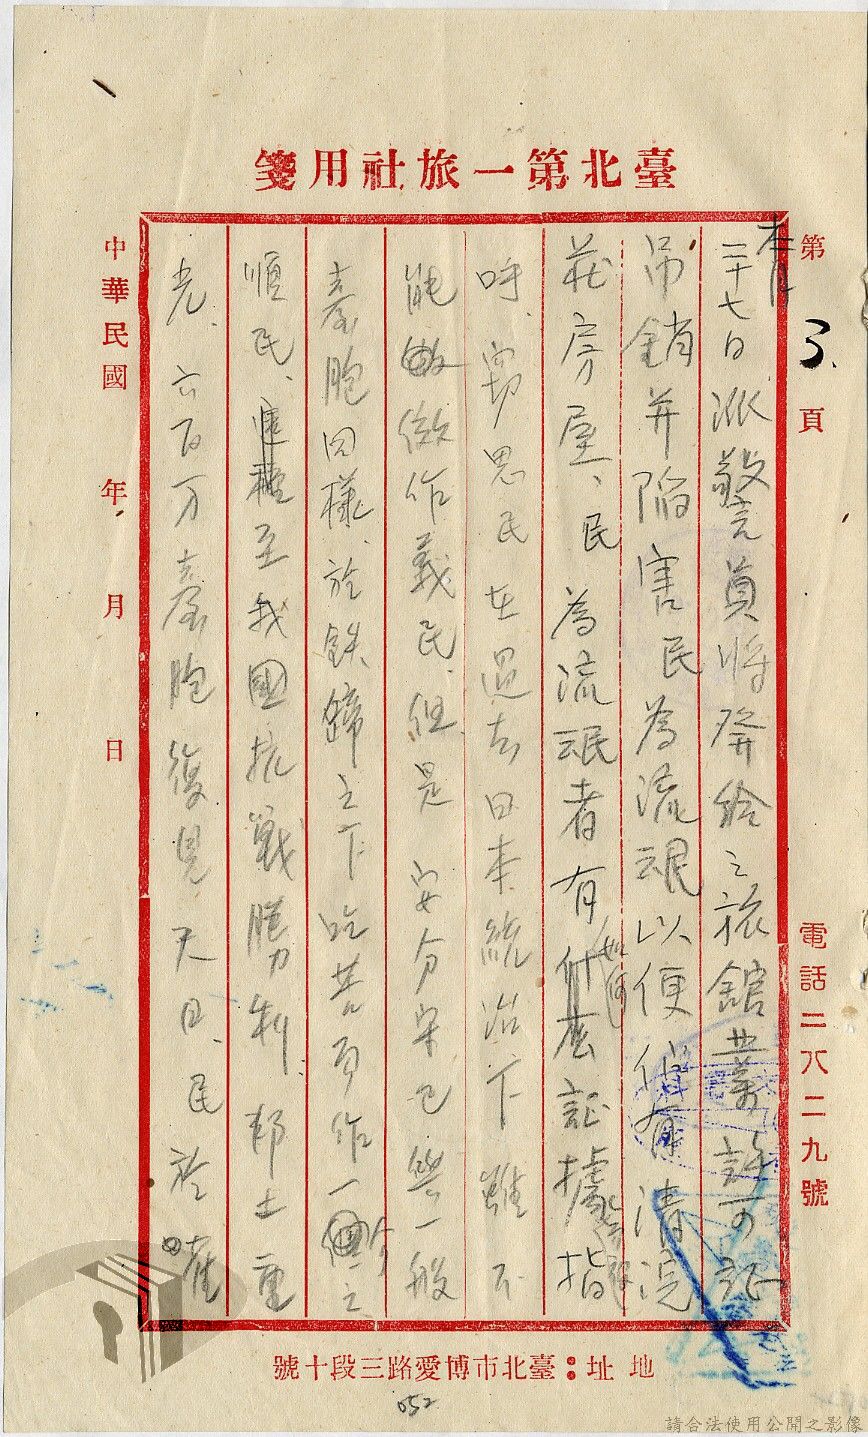 臺北第一旅社用箋
第3.頁
電話二八二九號
本月
二十七日派警員將發給之旅館業許可証
吊銷并陷害民為流氓以便佔有清浣
莊房屋、民為流氓者有什麽証據 指
如何
呼、窃思民在過去日本統治下雖不
能做作義民、但是安分守己與一般
臺胞同樣、於鉄蹄之下吃苦而作一 之
順民、 至我國抗戰勝利、邦土重
光、六百万臺胞復見天日、民於
中華民國 年 月 日
地址:臺北市博愛路三段十號
052
請合法使用公開之影像